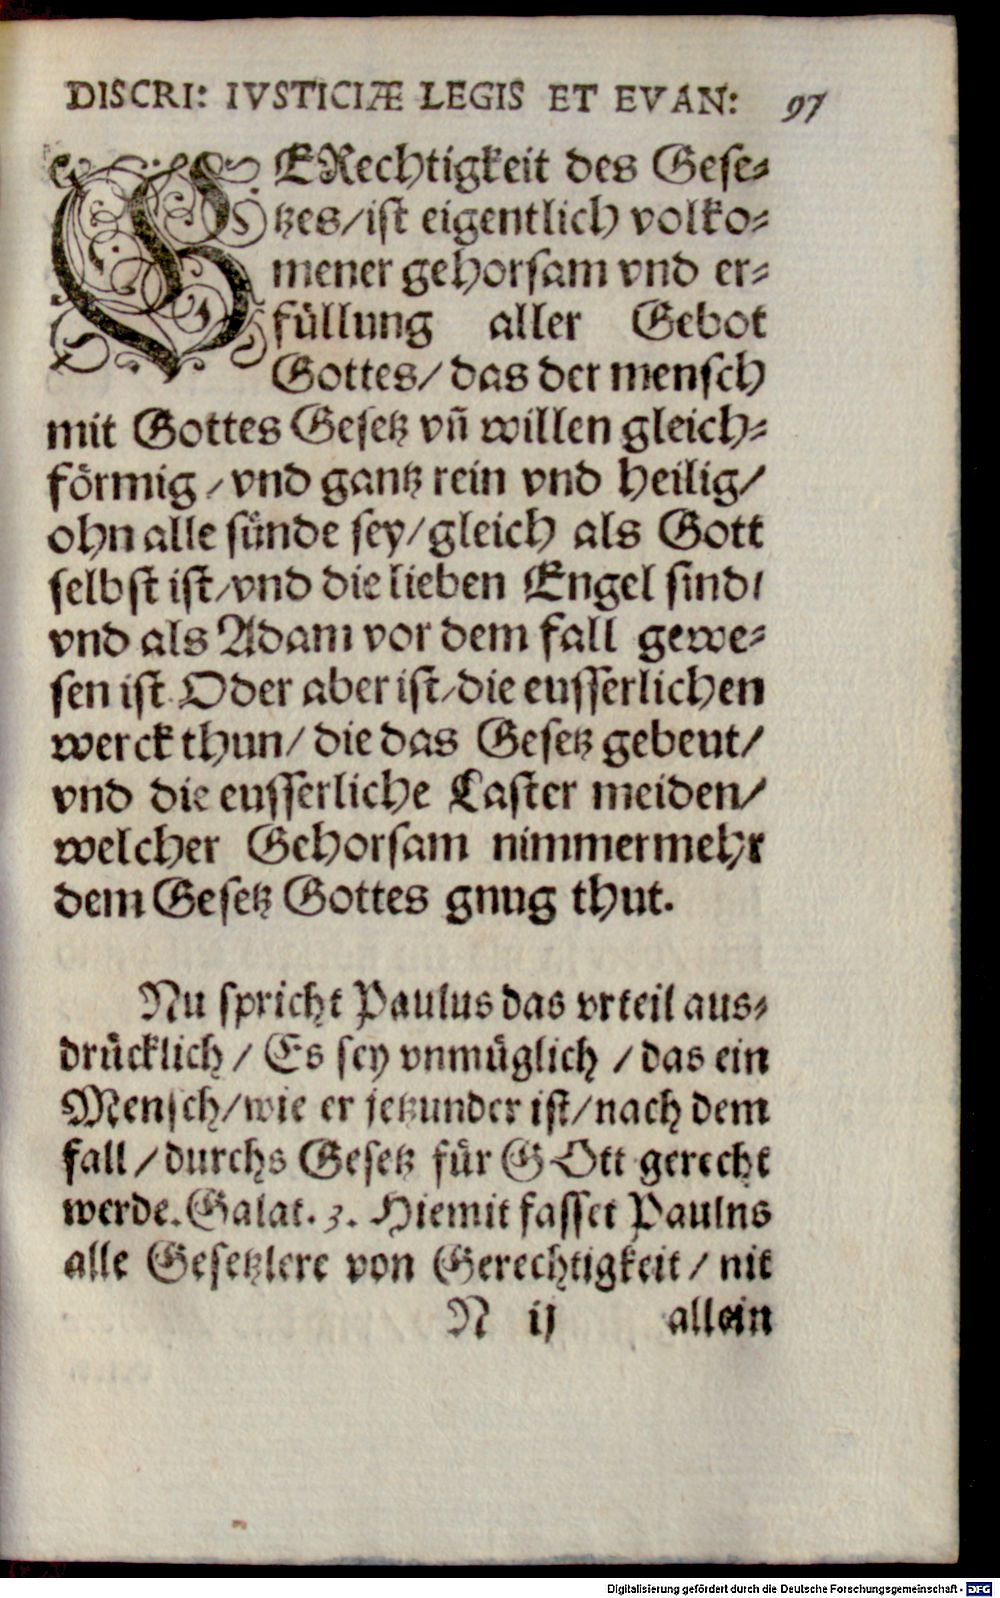 DISCRI: IVSTICIÆ LEGIS ET EVAN: 97
GERechtigkeit des Gese-
tzes/ist eigentlich volko-
mener gehorsam vnd er-
füllung aller Gebot
Gottes/das der mensch
mit Gottes Gesetz vn̄ willen gleich-
förmig/vnd gantz rein vnd heilig/
ohn alle sünde sey/gleich als Gott
selbst ist/vnd die lieben Engel sind/
vnd als Adam vor dem fall gewe-
sen ist Oder aber ist/die eusserlichen
werck thun/die das Gesetz gebeut/
vnd die eusserliche Laster meiden/
welcher Gehorsam nimmermehr
dem Gesetz Gottes gnug thut.
Nu spricht Paulus das vrteil aus-
drücklich/Es sey vnmüglich/das ein
Mensch/wie er jetzunder ist/nach dem
fall/durchs Gesetz für GOtt gerecht
werde. Galat. 3. Hiemit fasset Paulns
alle Gesetzlere von Gerechtigkeit/nit
N ij allein
Digitalisierung gefördert durch die Deutsche Forschungsgemeinschaft - DFG